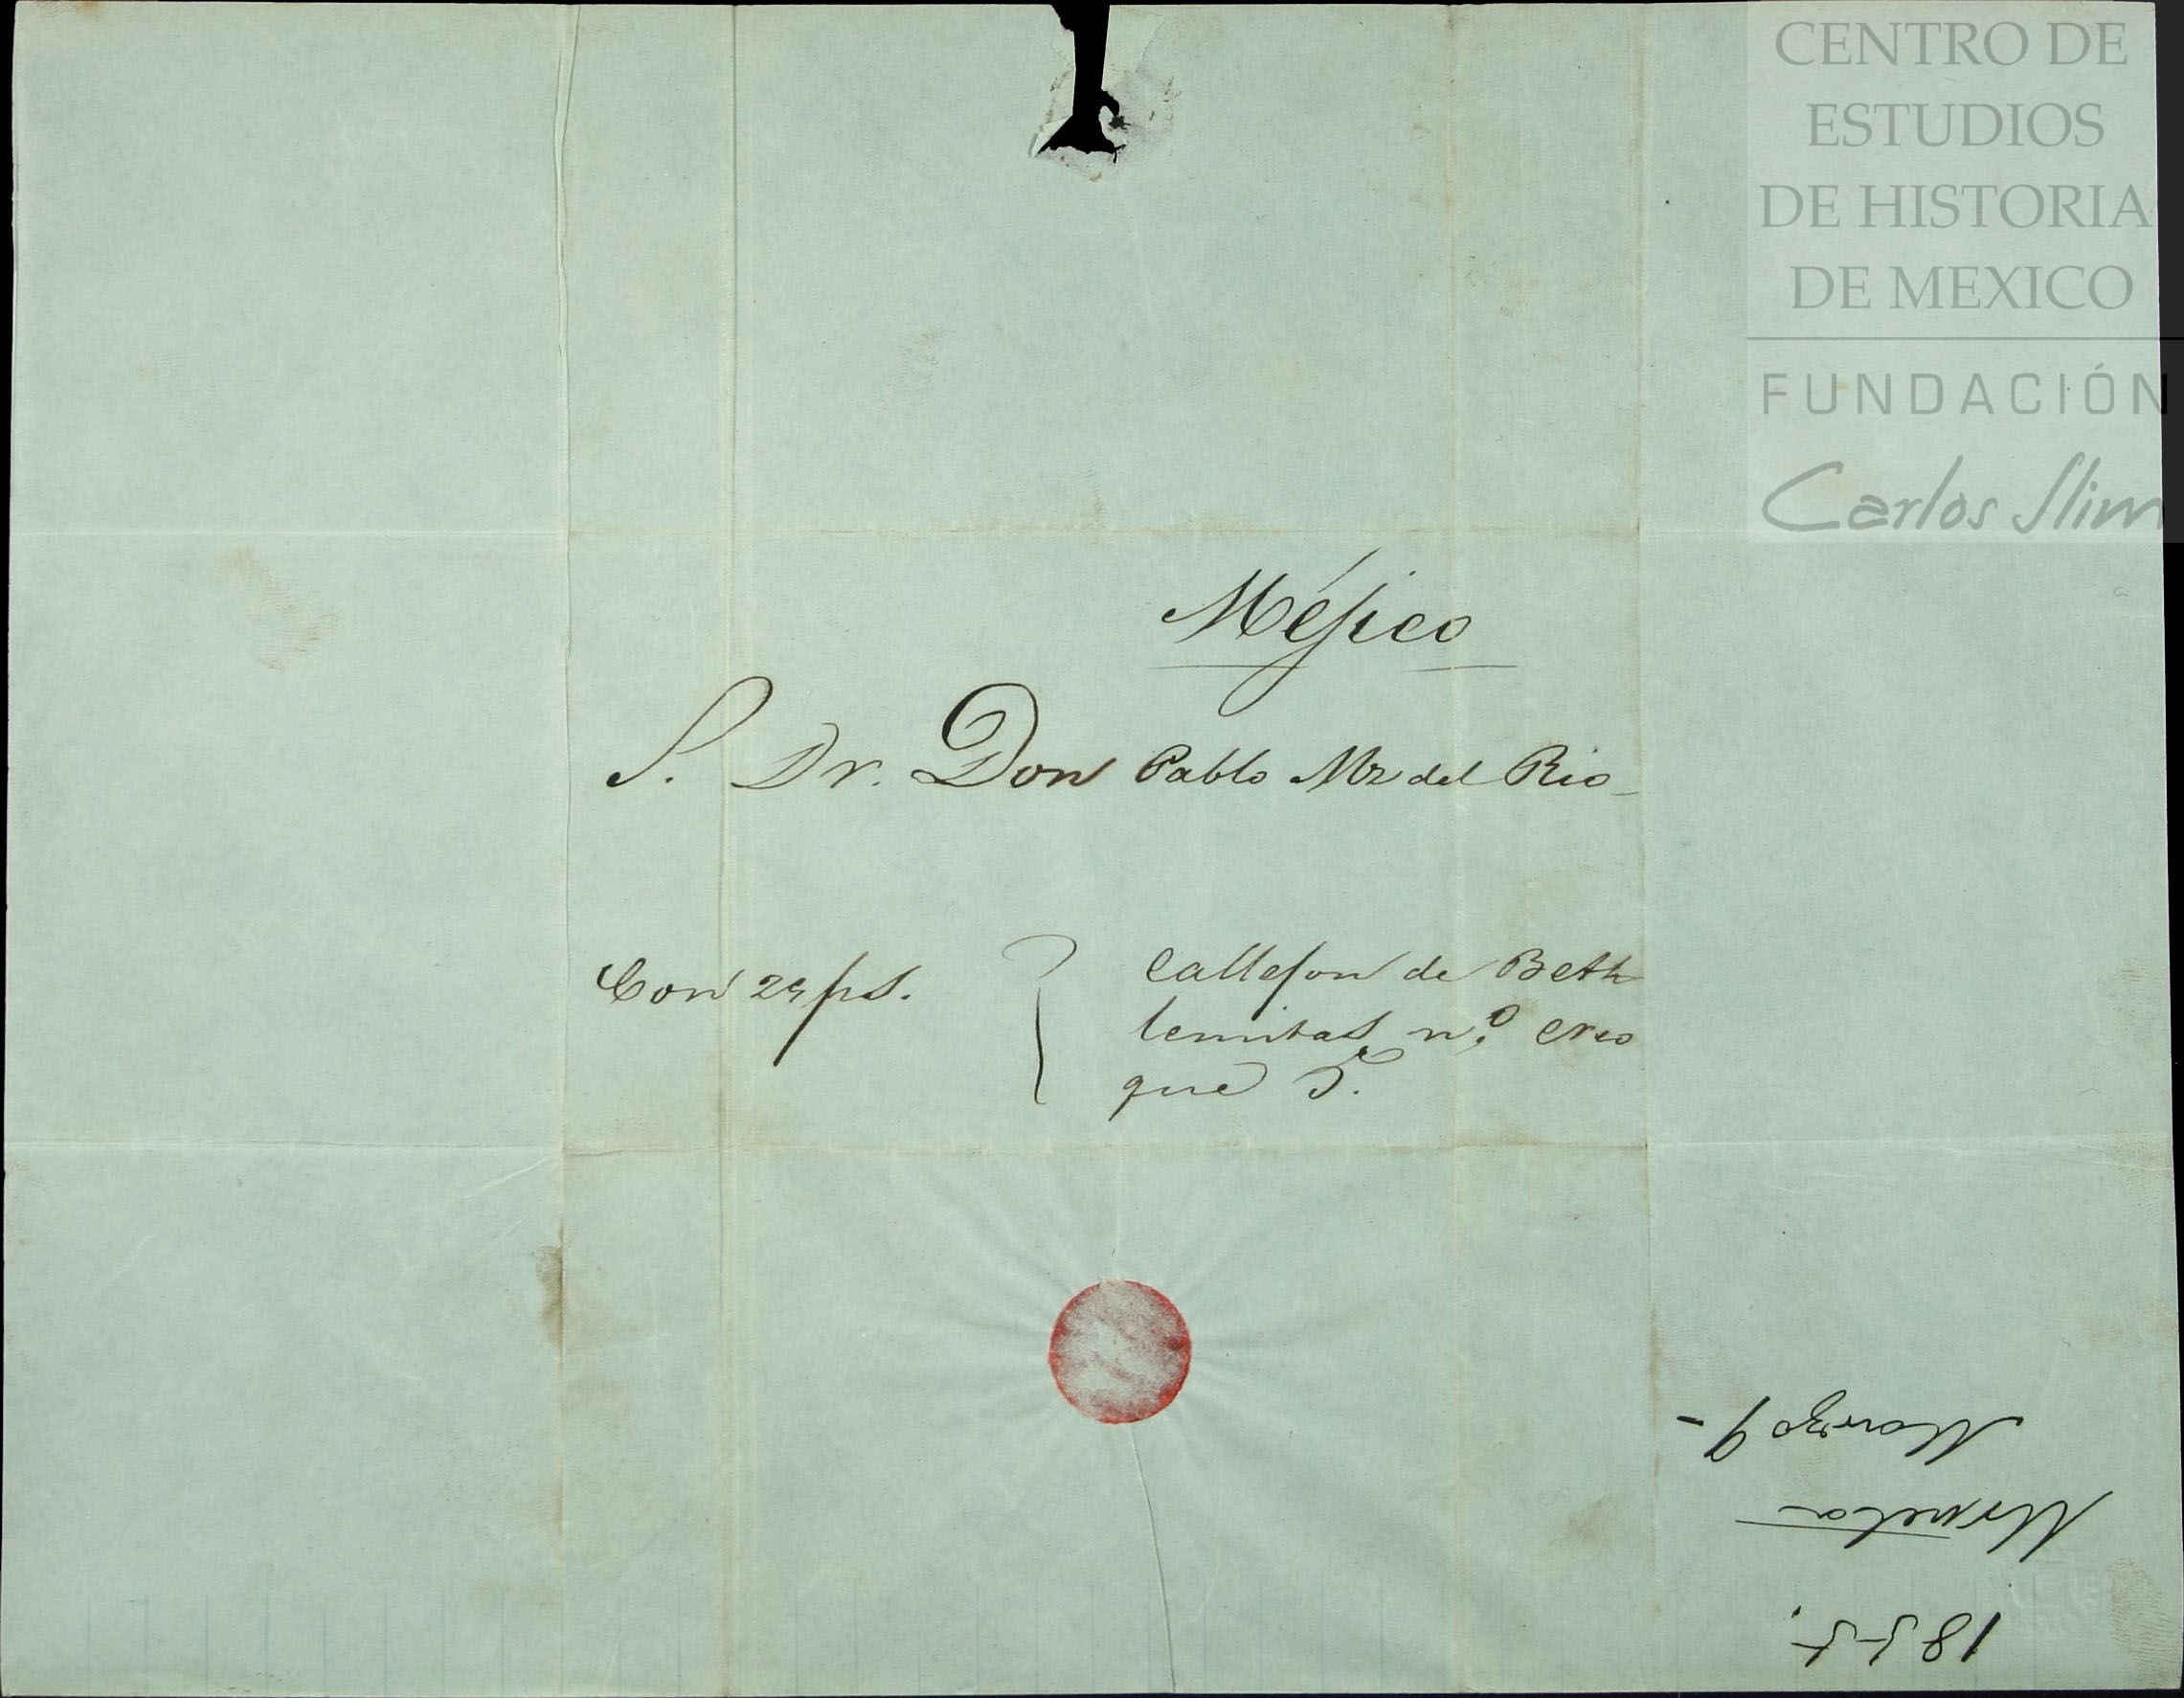 CENTRO DE
ESTUDIOS
DE HISTORIA
DE MEXICO
FUNDACIÓN
Carlos Slim
Méjico
S. Dr. Don Pablo Mz del Rio
Con 25 ps.
Callejon de Beth
lemitas n.º creo
que 5.
1855.
Marzo 9